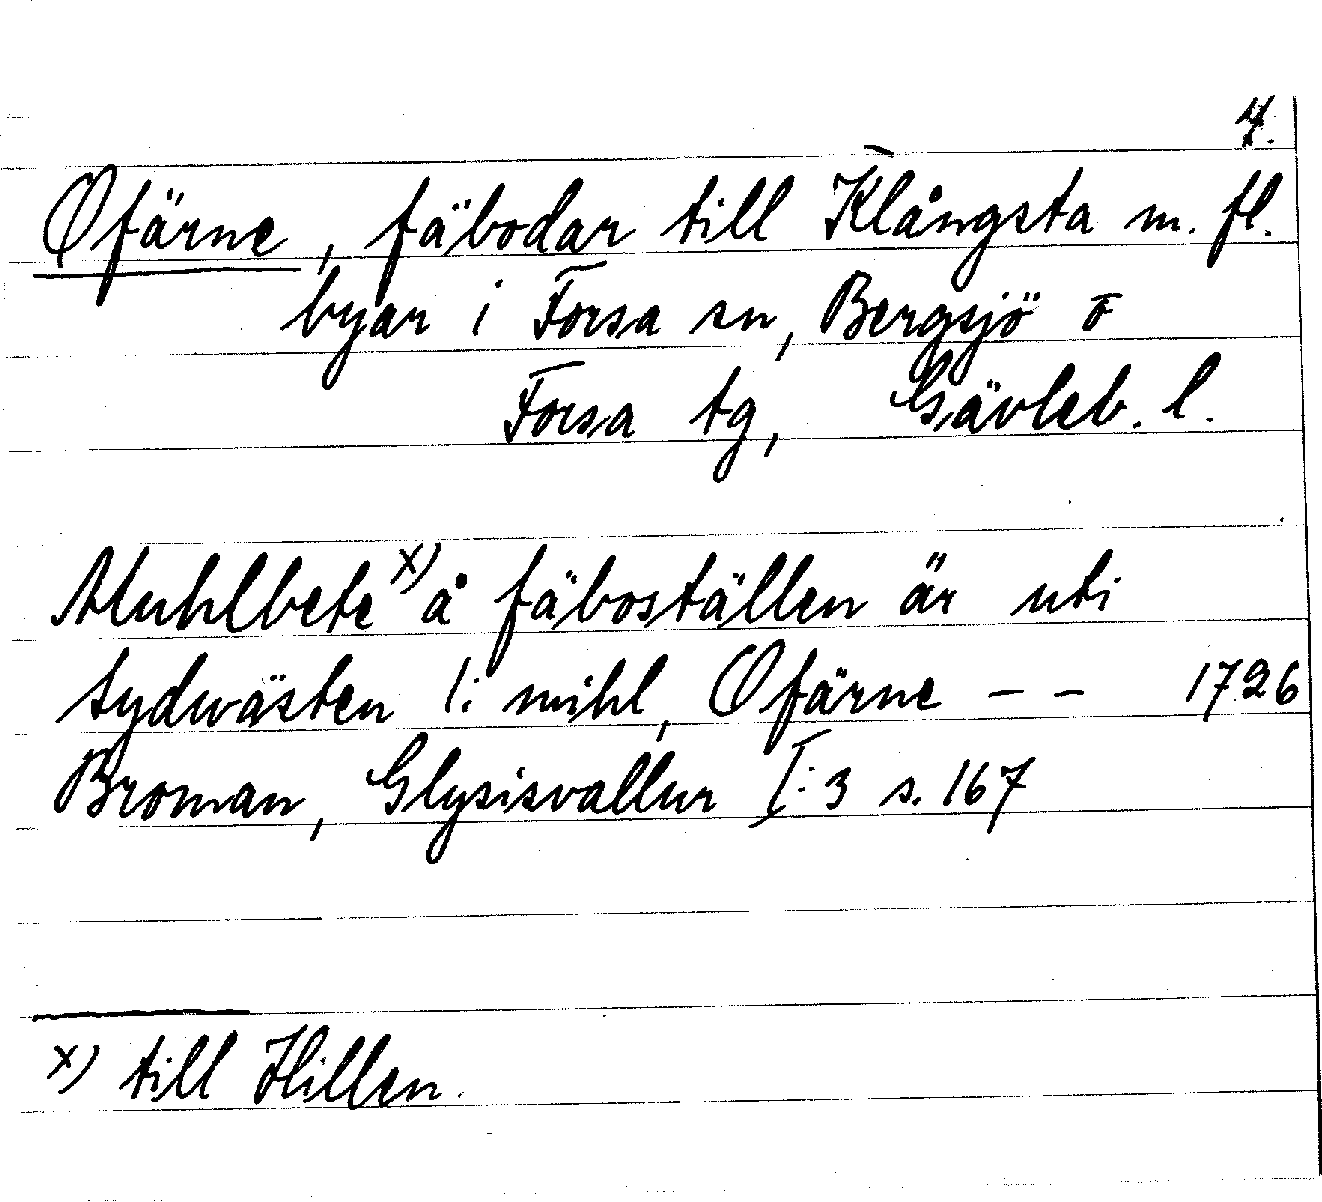 4.
Ofärne, fäbodar till Klångsta m. fl.
byar i Forsa sn, Bergsjö o
Forsa tg, Gävleb. l.
Muhlbete x) å fäboställen är uti
sydwästen 1: mihl, Ofärne – – 1726
Broman, Glysisvallur I:3 s. 167
x) till Hillen.